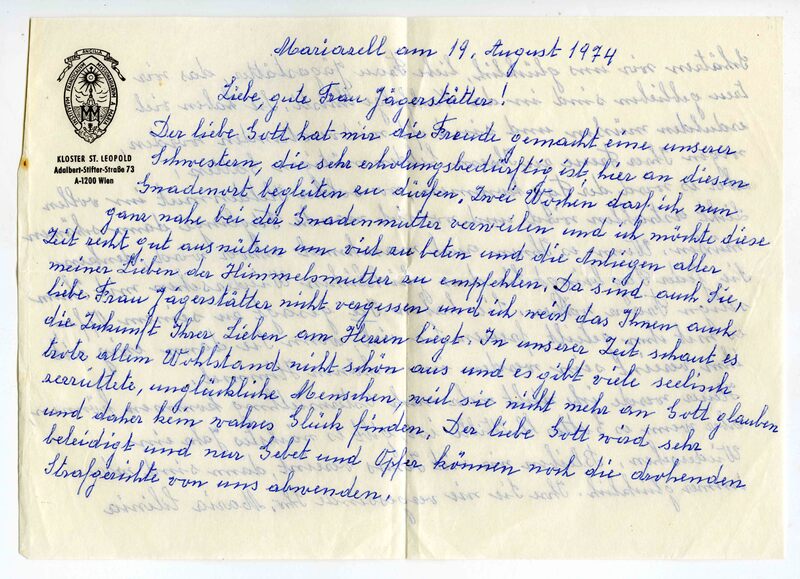 Mariazell am 19. August 1974
Liebe, gute Frau Jägerstätter!
KLOSTER ST. LEOPOLD
Adalbert-Stifter-Straße 73
A-1200 Wien
Der liebe Gott hat mir die Freude gemacht eine unserer
Schwestern, die sehr erholungsbedürftig ist, hier an diesen
Gnadenort begleiten zu dürfen. Zwei Wochen darf ich nun
ganz nahe bei der Gnadenmutter verweilen und ich möchte diese
Zeit recht gut ausnützen um viel zu beten und die Anliegen aller
meiner Lieben der Himmelsmutter zu empfehlen. Da sind auch Sie,
liebe Frau Jägerstätter nicht vergessen und ich weiß das Ihnen auch
die Zukunft Ihrer Lieben am Herzen liegt. In unserer Zeit schaut es
trotz allem Wohlstand nicht schön aus und es gibt viele seelisch
zerrüttete, unglückliche Menschen, weil sie nicht mehr an Gott glauben
und daher kein wahres Glück finden. Der liebe Gott wird sehr
beleidigt und nur Gebet und Opfer können noch die drohenden
Strafgerichte von uns abwenden.